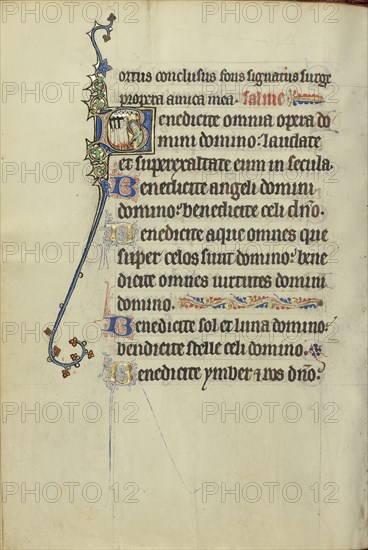 ortus conclusus fons signatus surge
propera amica mea. salmꝰ
Benedicite omnia opera do
mini domino: laudate
et superexaltate eum in secula.
Benedicite angeli domini
domino: benedicite celi dño.
Benedicite aque omnes que
super celos sunt domino: bene
dicite omnes uirtutes domini
domino.
Benedicite sol et luna domino:
benedicite stelle celi domino.
Benedicite ymber & ros dño:
PHOTO 12